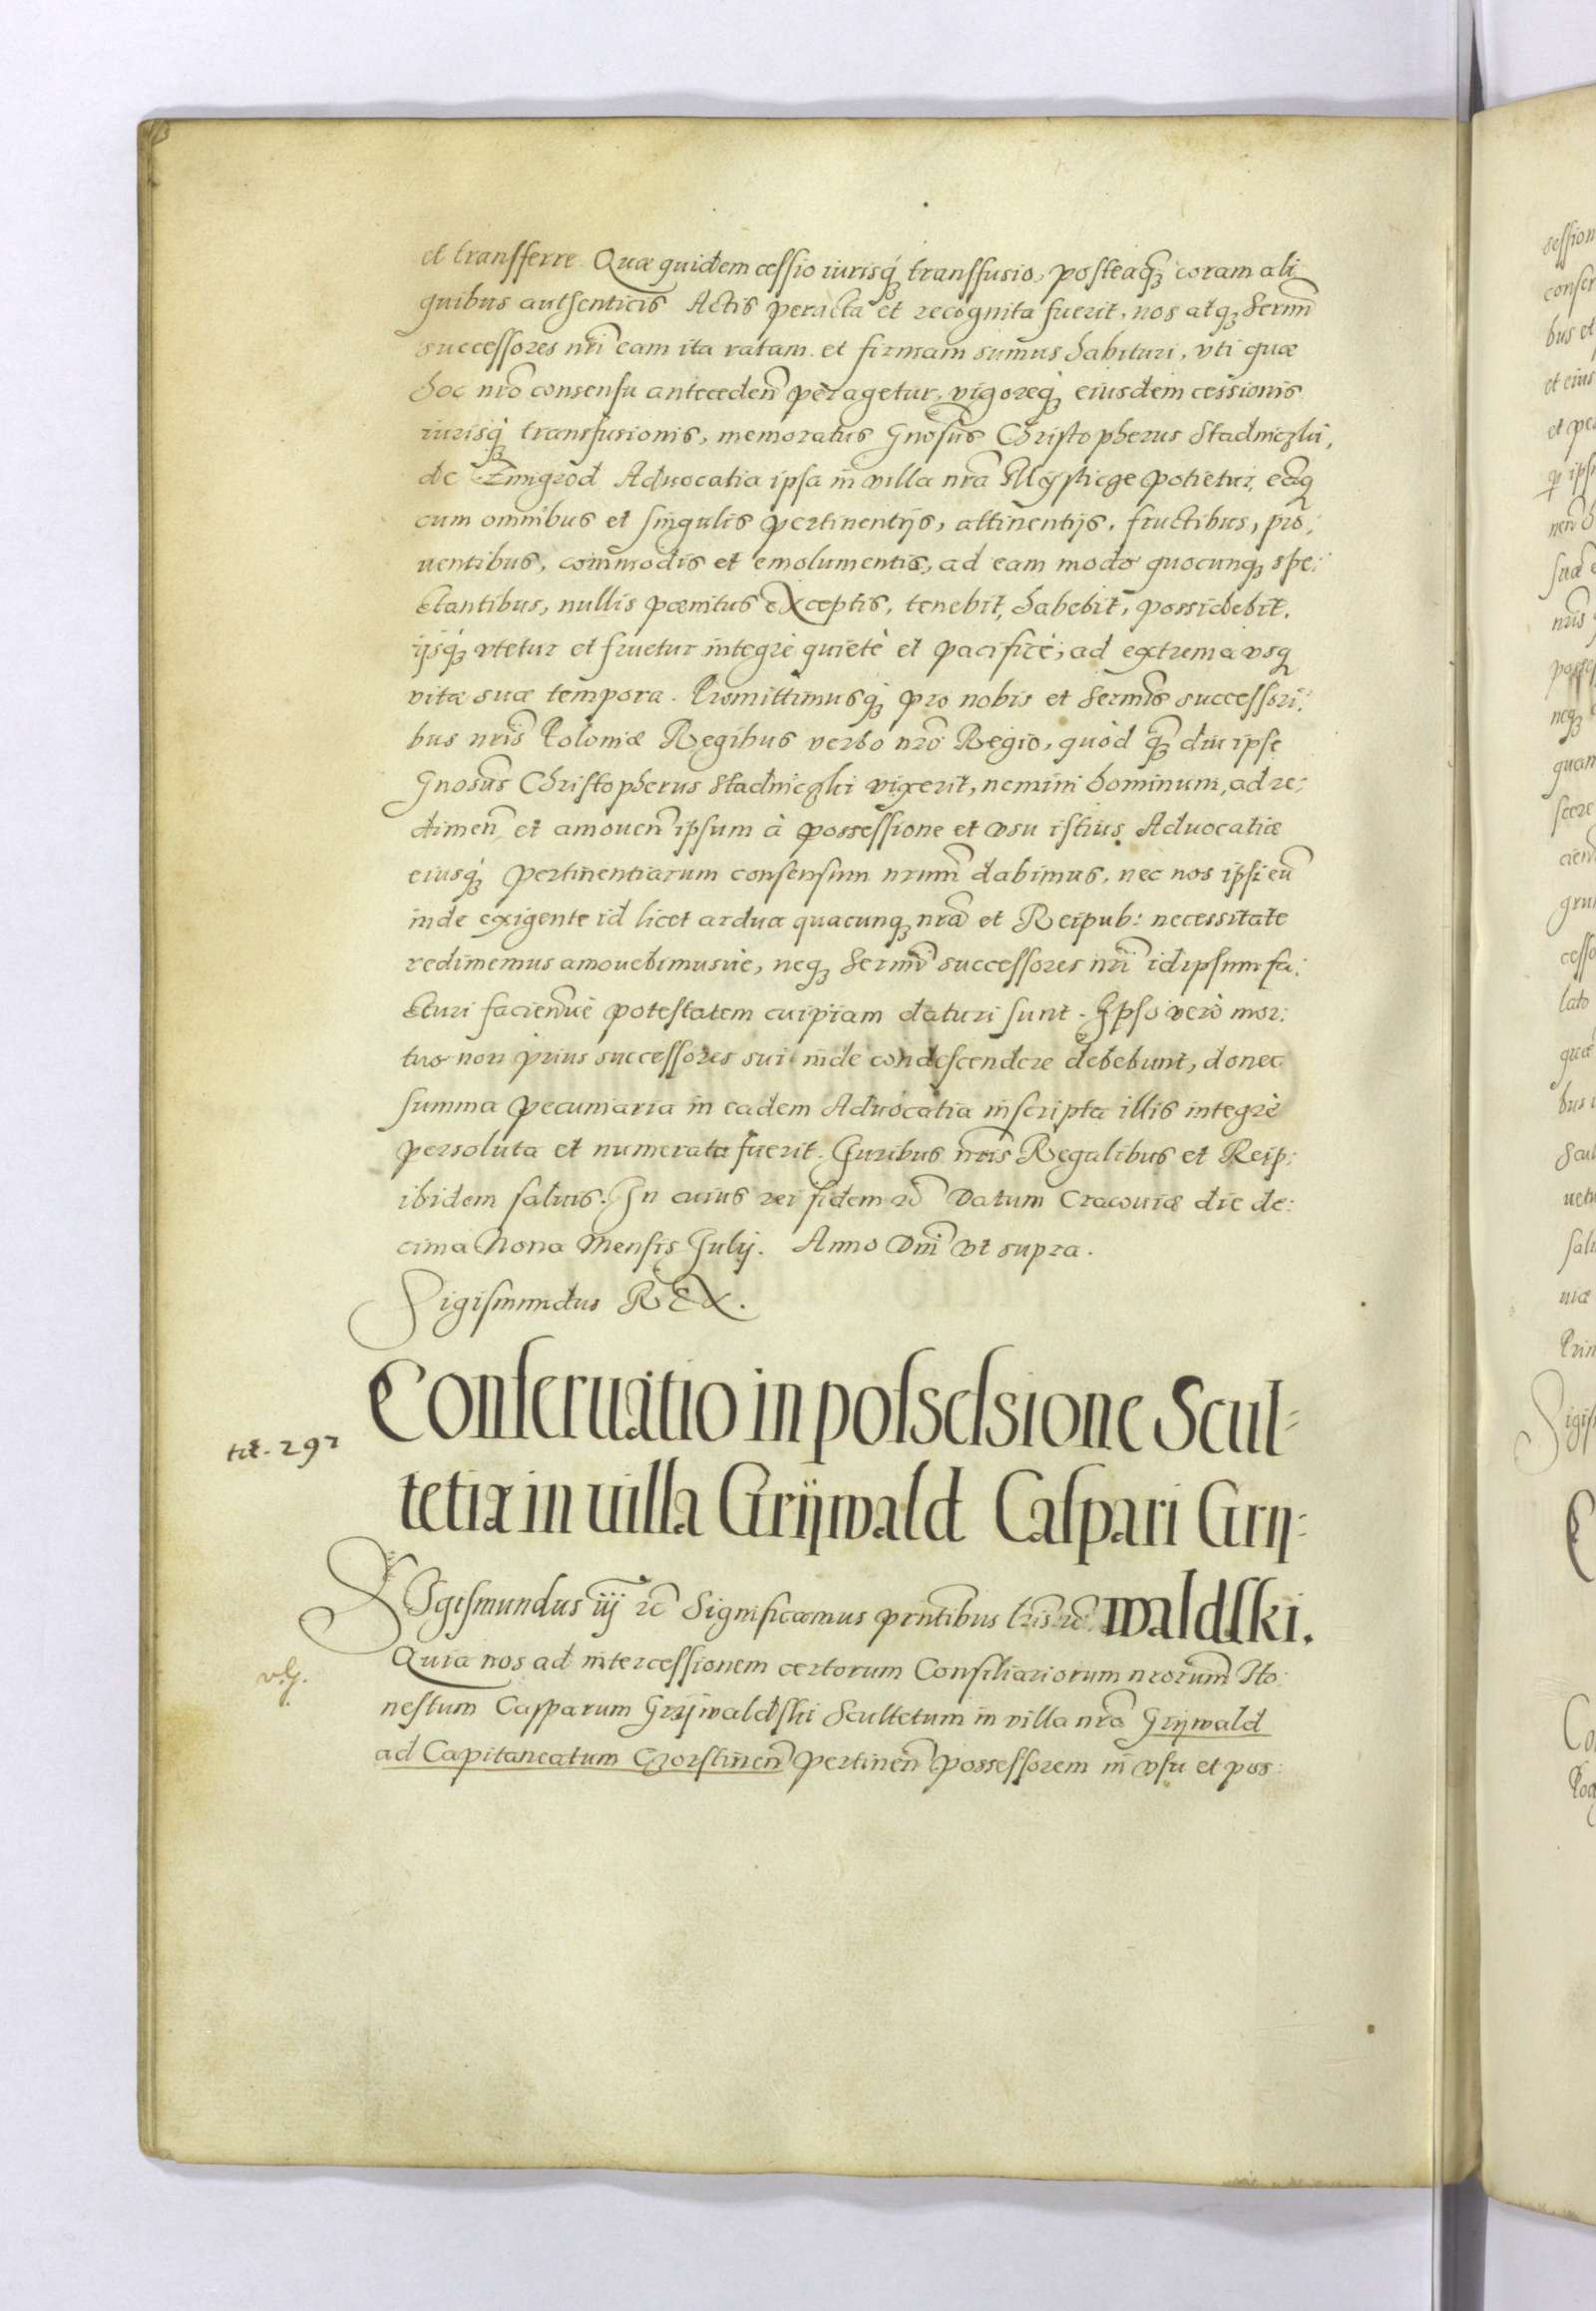 et transferre. Quæ quidem cessio iurisq́ȝ transfusio, posteaq̃ȝ coram ali
quibus authenticis Actis peracta et recognita fuerit, nos atqȝ Sermi̅
successores nri̅ eam ita ratam et firmam sumus habituri, vti quæ
hoc nro̅ consensu anteceden̅ peragetur, vigoreq́ȝ eiusdem cessionis
iurisq́ȝ transfusionis, memoratus Gnosus̅ Christopherus Stadniczki,
de Zmigrod Aduocatia ipsa in villa nra̅ Mÿsticze potietur, ea̅qȝ
cum omnibus et singulis pertinentijs, attinentijs, fructibus, pro:
uentibus, commodis et emolumentis, ad eam modo quocunqȝ spe:
ctantibus, nullis pœnitus exceptis, tenebit, habebit, possidebit,
ijsq́ȝ vtetur et fruetur integrè quietè et pacificè, ad extrema vsqȝ
vitæ suæ tempora. Promittimusq́ȝ pro nobis et Sermis̅ successori:
bus nris̅ Poloniæ Regibus verbo nro̅ Regio, quòd q̃ȝ diu ipse
Gnosus̅ Christopherus Stadniczki vixerit, nemini hominum, ad re:
dimen̅ et amouen̅ ipsum à possessione et vsu istius Aduocatiæ
eiusq́ȝ pertinentiarum consensum nrum̅ dabimus, nec nos ipsi eu̅
inde exigente id licet ardua quacunqȝ nra̅ et Reipub: necessitate
redimemus amouebimusuè, neqȝ Sermi̅ successores nri̅ idipsum fa:
cturi facien̅uè potestatem cuipiam daturi sunt. Ipso verò mor:
tuo non prius successores sui inde condescendere debebunt, donec
summa pecuniaria in eadem Aduocatia inscripta illis integrè
persoluta et numerata fuerit. Iuribus nris̅ Regalibus et Reip:
ibidem saluis. In cuius rei fidem ꝛc̅ Datum Cracouiæ die de:
cima Nona Mensis Julij. Anno Dni̅ vt supra.
Sigismundus REX.
Conseruatio in possessione Scul-
tit. 292
tetiæ in uilla Grÿwald Caspari Grÿ:
waldski.
Sigismundus iij ꝛc̅ Significamus prntibus̅ lris̅ ꝛc̅
Quia nos ad intercessionem certorum Consiliariorum nrorum̅ Ho:
v.g.
nestum Casparum Grÿwaldski Scultetum in villa nra̅ Grÿwald
ad Capitaneatum Czorstinen̅ pertinen̅ possessorem in vsu et pos: